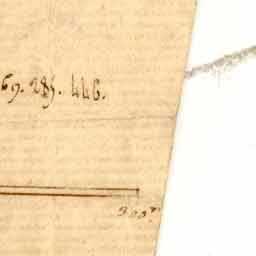 69. 285. 446.
300